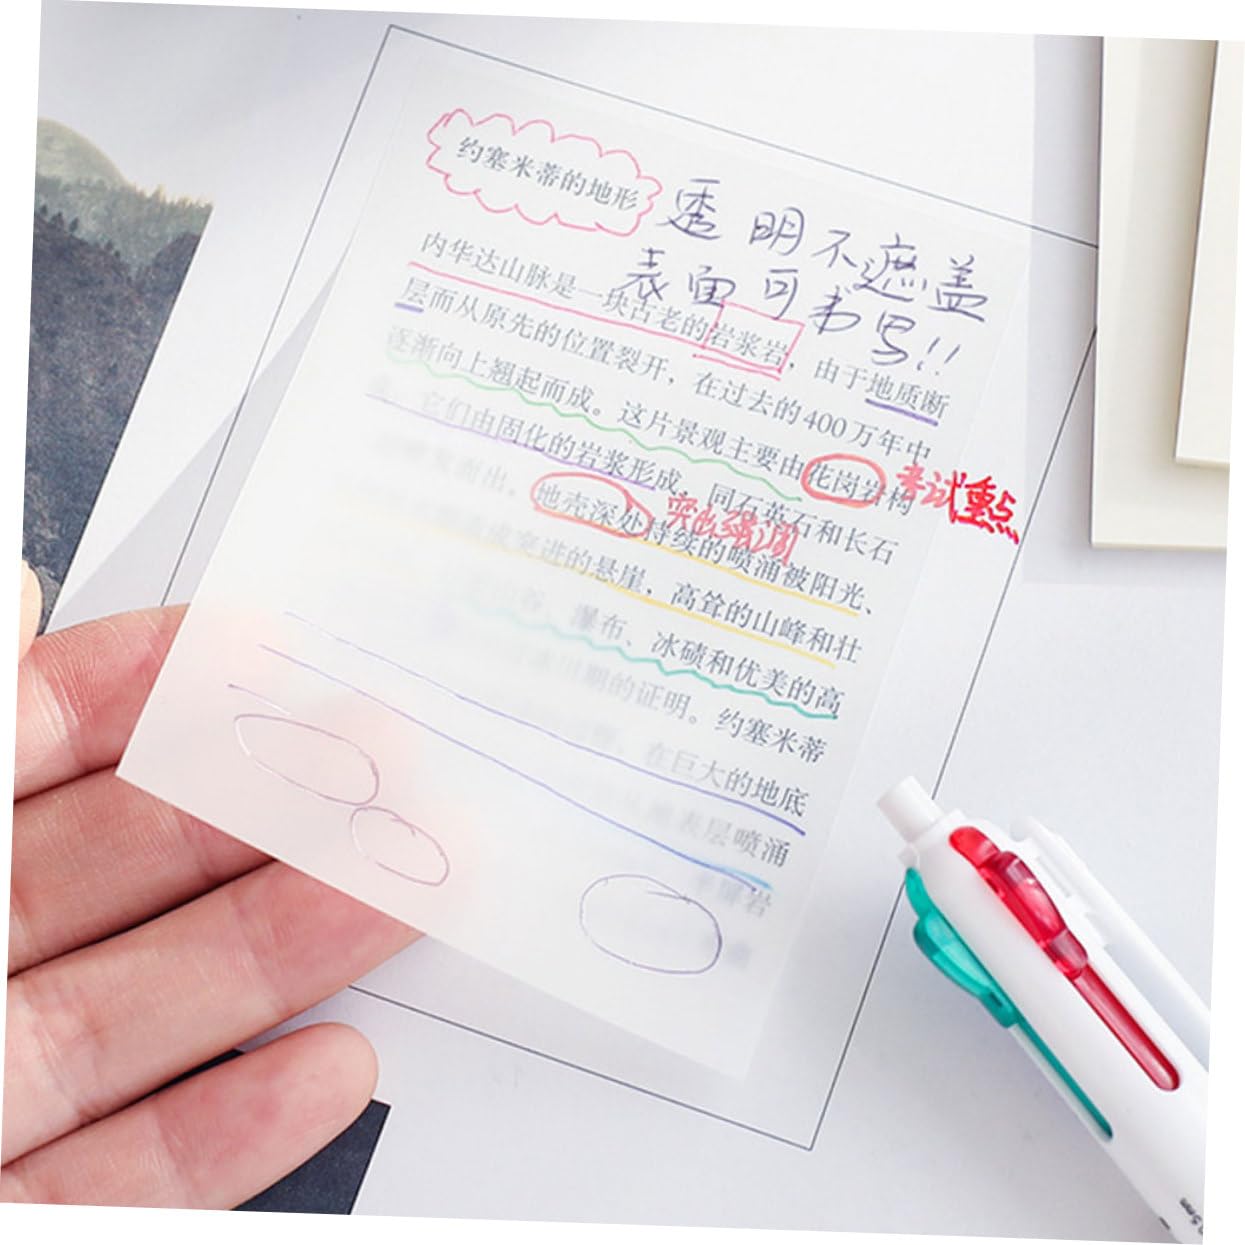 约塞米蒂的地形
透明不遮盖
表面可书写!!
内华达山脉是一块古老的岩浆岩，由于地质断
层而从原先的位置裂开，在过去的400万年中
逐渐向上翘起而成。这片景观主要由花岗岩构
考试重点
它们由固化的岩浆形成，同石英石和长石
突出强调
地壳深处持续的喷涌被阳光、
突进的悬崖，高耸的山峰和壮
瀑布、冰碛和优美的高
期的证明。约塞米蒂
在巨大的地底
表层喷涌
岩
0.5mm